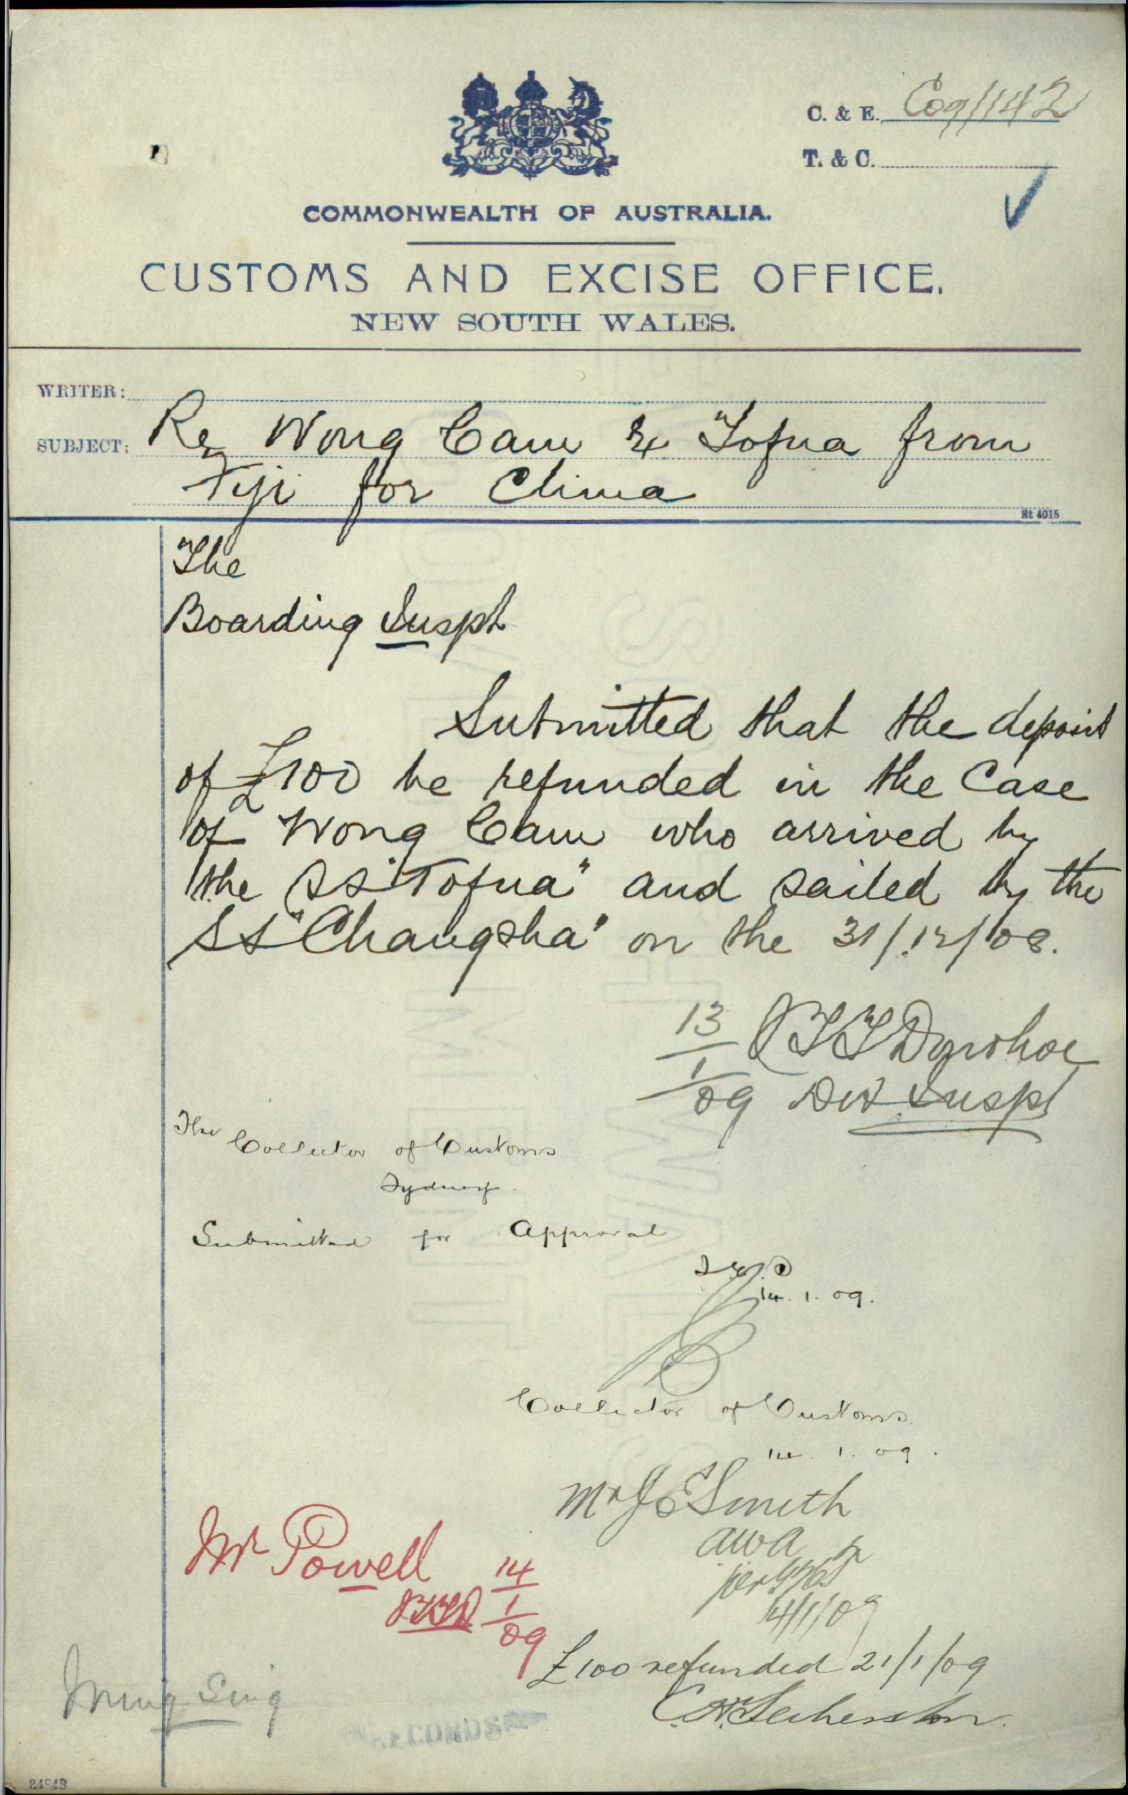 C. & E. C09/142
T. & C.
COMMONWEALTH OF AUSTRALIA.
CUSTOMS AND EXCISE OFFICE.
NEW SOUTH WALES.
WRITER:
SUBJECT: Re Wong Cam Ex Tofua from
Fiji for China
The
Boarding Inspt
Submitted that the deposit
of £100 be refunded in the case
of Wong Cam who arrived by
the SS "Tofua" and sailed by the
SS "Changsha" on the 31/12/08.
13/1/09 Donohoe
Det Inspt
The Collector of Customs
Sydney.
Submitted for Approval
14.1.09.
Collector of Customs.
14.1.09.
Mr J Smith
14/1/09
Mr Powell 14/1/09
£100 refunded 21/1/09
Sing
24843